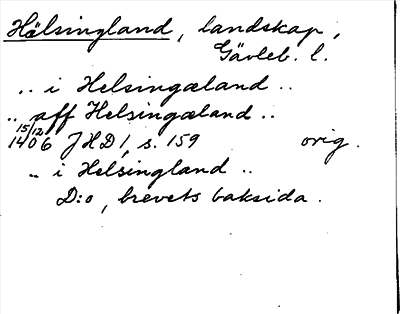 Hälsingland, landskap,
Gävleb. l.
.. i Helsingæland ..
.. aff Helsingæland ..
15/12 1406 JHD 1, s. 159 orig.
.. i Helsingland ..
D:o, brevets baksida.